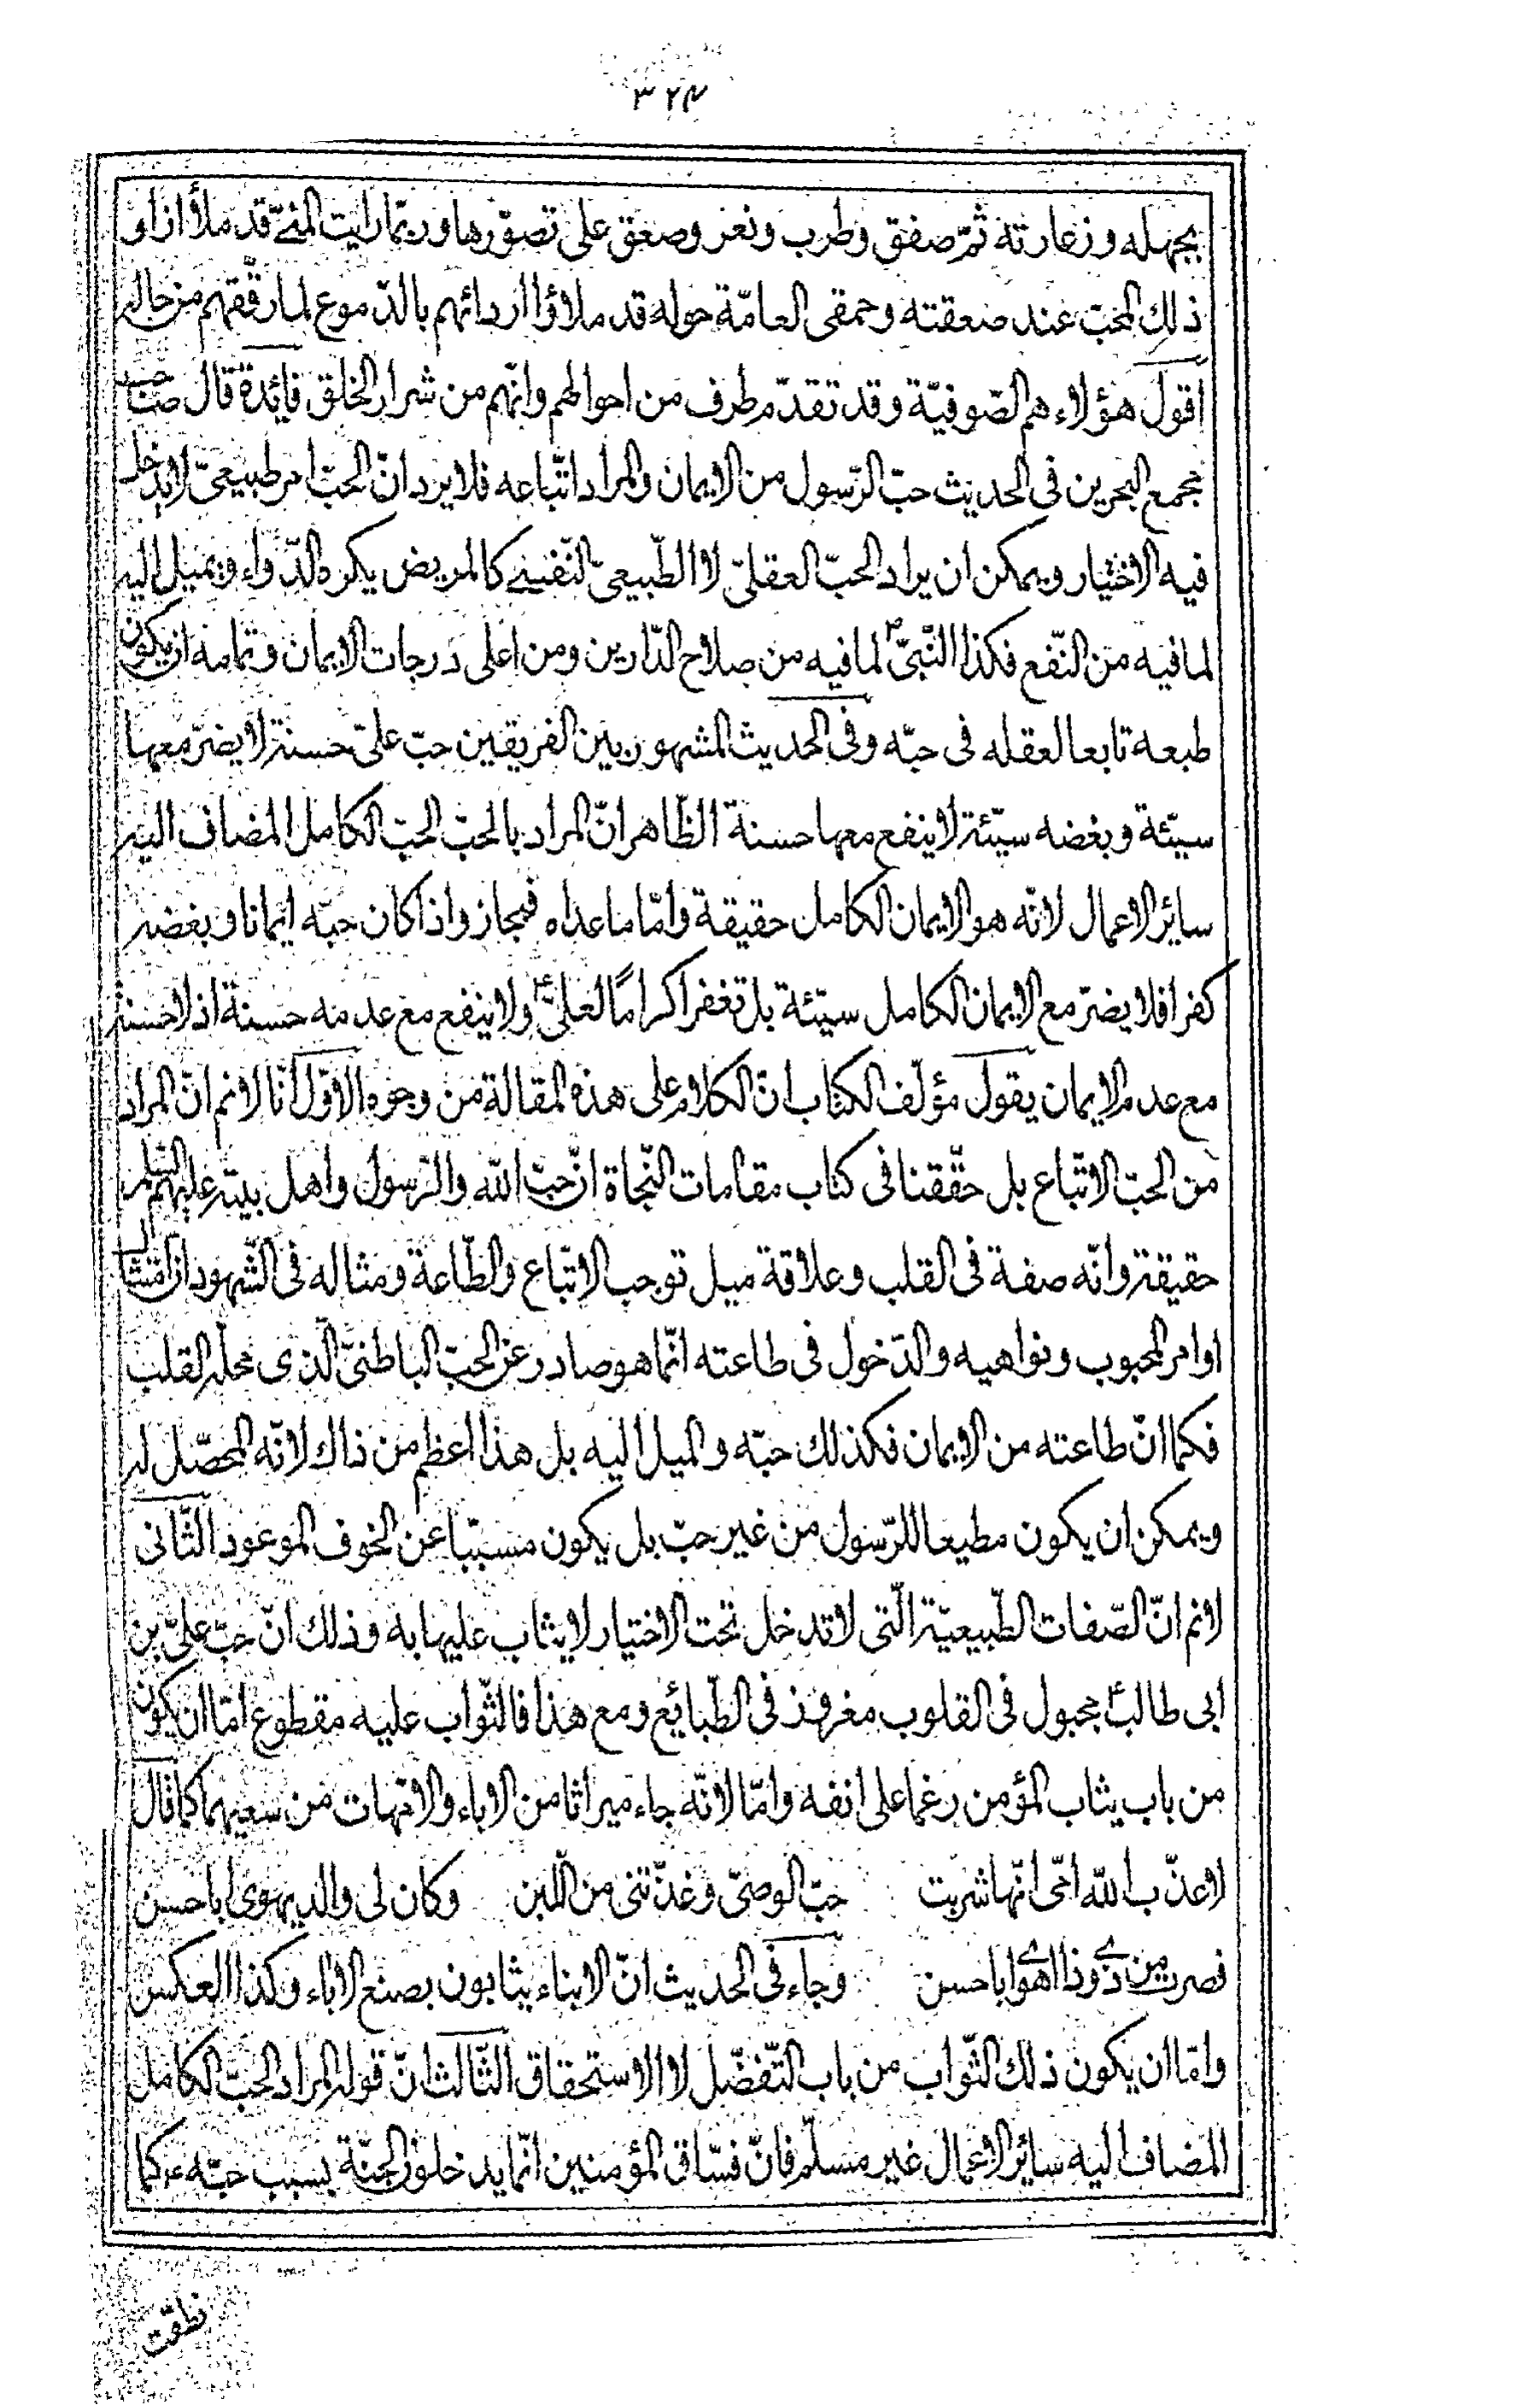 ٣٢٤
بجهله وزعارته ثمّ صفق وطرب ونعر وصعق على تصوّرها وربّما رايت المنىّ قد ملأ ازار
ذلك المحبّ عند صعقته وحمقى العامّة حوله قد ملاؤا اردائهم بالدّموع لما رقّقهم من حاله
اقول هؤلاء هم الصّوفيّة وقد تقدّم طرف من احوالهم وانّهم من شرار الخلق فائدة قال صاحب
مجمع البحرين فى الحديث حبّ الرّسول من الايمان والمراد اتّباعه فلا يرد انّ الحبّ امر طبيعىّ لا يدخل
فيه الاختيار ويمكن ان يراد الحبّ العقلىّ لا الطّبيعىّ النّفسىّ كالمريض يكره الدّواء ويميل اليه
لما فيه من النّفع فكذا النّبىّ ص لما فيه من صلاح الدّارين ومن اعلى درجات الايمان وتمامه ان يكون
طبعه تابعا لعقله فى حبّه وفى الحديث المشهور بين الفريقين حبّ علىّ حسنة لا يضرّ معها
سيّئة وبغضه سيّئة لا ينفع معها حسنة الظّاهر انّ المراد بالحبّ الحبّ الكامل المضاف اليه
سائر الاعمال لانّه هو الايمان الكامل حقيقة وامّا ما عداه فمجاز واذا كان حبّه ايمانا وبغضه
كفرا فلا يضرّ مع الايمان الكامل سيّئة بل تغفر اكرامًا لعلىّ ع ولا ينفع مع عدمه حسنة اذ لا حسنة
مع عدم الايمان يقول مؤلّف الكتاب انّ الكلام على هذه المقالة من وجوه الاوّل انّا لا نم انّ المراد
من الحبّ الاتّباع بل حقّقنا فى كتاب مقامات النّجاة انّ حبّ الله والرّسول واهل بيته عليهم السّلم
حقيقة وانّه صفة فى القلب وعلاقة ميل توجب الاتّباع والطّاعة ومثاله فى الشّهود ان امتثال
اوامر المحبوب ونواهيه والدّخول فى طاعته انّما هو صادر عن الحبّ الباطنىّ الّذى محلّه القلب
فكما انّ طاعته من الايمان فكذلك حبّه والميل اليه بل هذا اعظم من ذاك لانّه المحصّل له
ويمكن ان يكون مطيعا للرّسول من غير حبّ بل يكون مسبّبا عن الخوف الموعود الثّانى
لا نم انّ الصّفات الطّبيعيّة الّتى لا تدخل تحت الاختيار لا يثاب عليها به وذلك انّ حبّ علىّ بن
ابى طالب ع مجبول فى القلوب مغروز فى الطّبايع ومع هذا فالثّواب عليه مقطوع امّا ان يكون
من باب يثاب المؤمن رغما على انفه وامّا لانّه جاء ميراثا من الاباء والامّهات من سعيهما كما قال
لا عذّب الله امّى انّها شربت حبّ الوصىّ وغذّتنى من اللّبن وكان لى والد يهوى ابا حسن
فصرت من ذى وذا اهوى ابا حسن وجاء فى الحديث انّ الابناء يثابون بصنع الاباء وكذا العكس
وامّا ان يكون ذلك الثّواب من باب التّفضّل لا الاستحقاق الثّالث انّ قوله المراد الحبّ الكامل
المضاف اليه سائر الاعمال غير مسلّم فانّ فسّاق المؤمنين انّما يدخلون الجنّة بسبب حبّه ع كما
نطقت